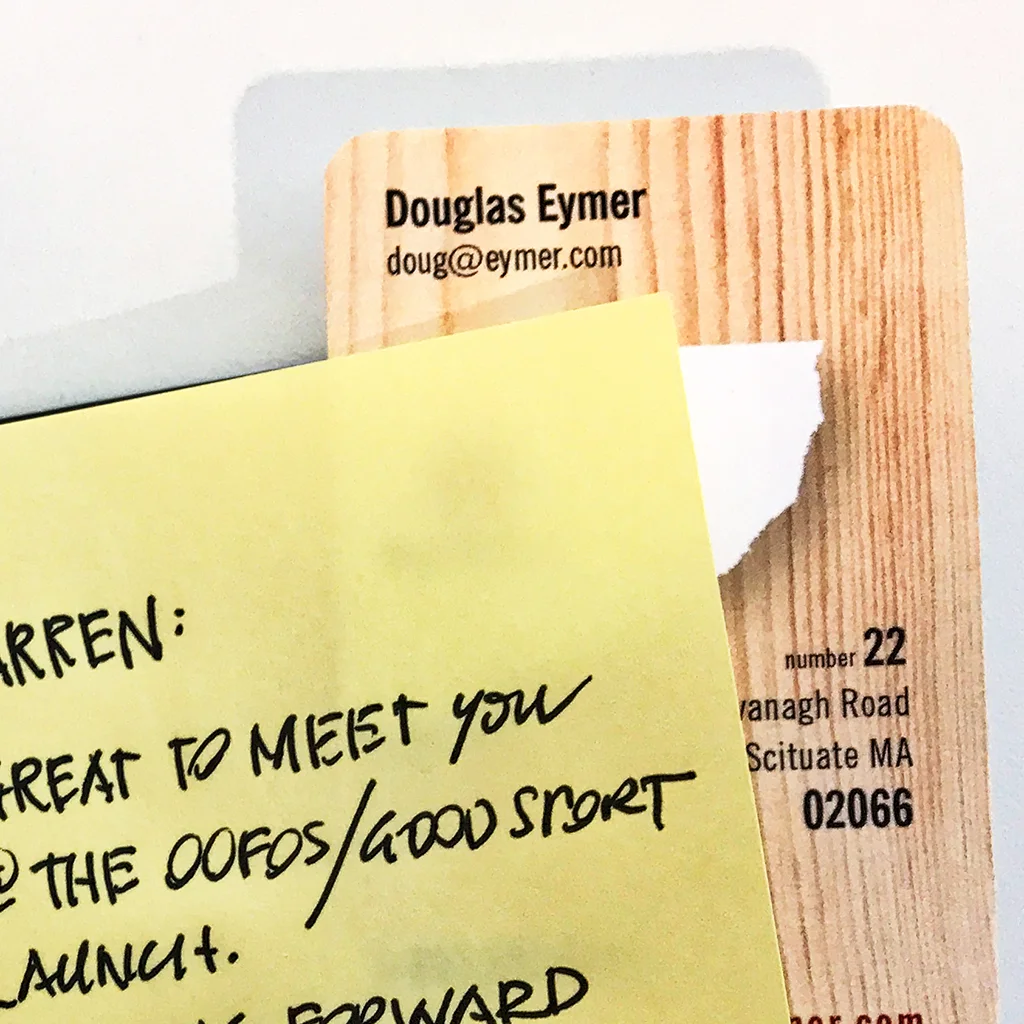 Douglas Eymer
doug@eymer.com
number 22
vanagh Road
Scituate MA
02066
ARREN:
GREAT TO MEET YOU
@ THE OOFOS/GOOD SPORT
LAUNCH.
FORWARD